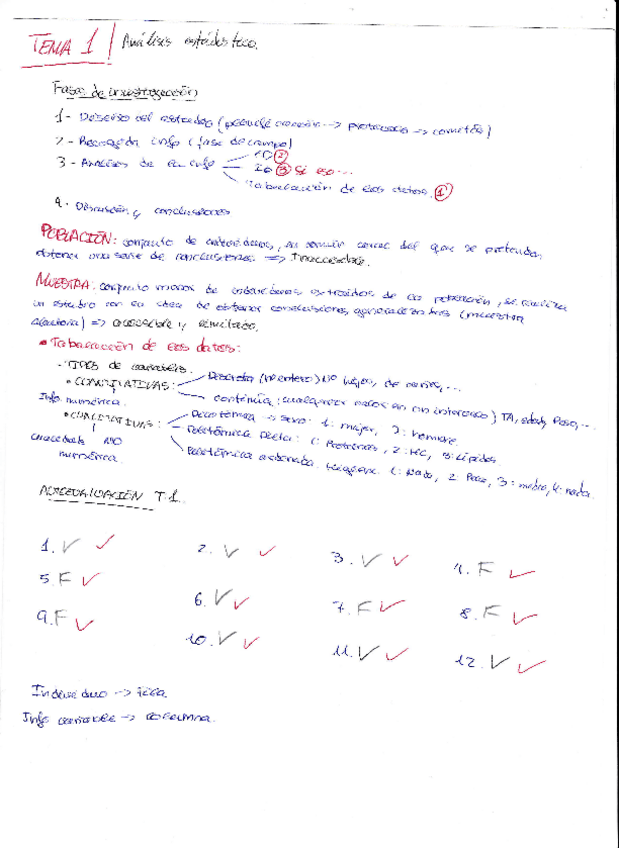 TEMA 1 Análisis estadístico.
Fases de investigación
1- Diseño del estudio ( → protocolo → comité)
2- Recogida info (fase de campo)
3- Análisis de la info ② ③ Si eso...
Tabulación de los datos. ①
4- Discusión y conclusiones
POBLACIÓN: conjunto de individuos, en común acerca del que se pretenden
obtener una serie de conclusiones ⇒ Inaccesible.
MUESTRA: conjunto menor de individuos extraídos de la población, se realiza
un estudio con la idea de obtener conclusiones (muestra
aleatoria) ⇒ accesible y limitado.
• Tabulación de los datos:
- TIPOS de variables.
• CUANTITATIVAS: Discreta (nº entero) Nº hijos, de caries,...
Info numérica. continua: cualquier valor en un intervalo) TA, edad, Peso,...
• CUALITATIVAS: Dicotómica → sexo: 1: mujer, 2: hombre.
Politómica 1: Proteínas, 2: HC, 3: Lípidos.
NO numérica. Politómica ordenada. 1: Nada, 2: Poco, 3: medio, 4:
AUTOEVALUACIÓN T.1.
1. V ✓ 2. V ✓ 3. V ✓ 4. F ✓
5. F ✓ 6. V ✓ 7. F ✓ 8. F ✓
9. F ✓ 10. V ✓ 11. V ✓ 12. V ✓
Individuo → fila.
Info variable → columna.